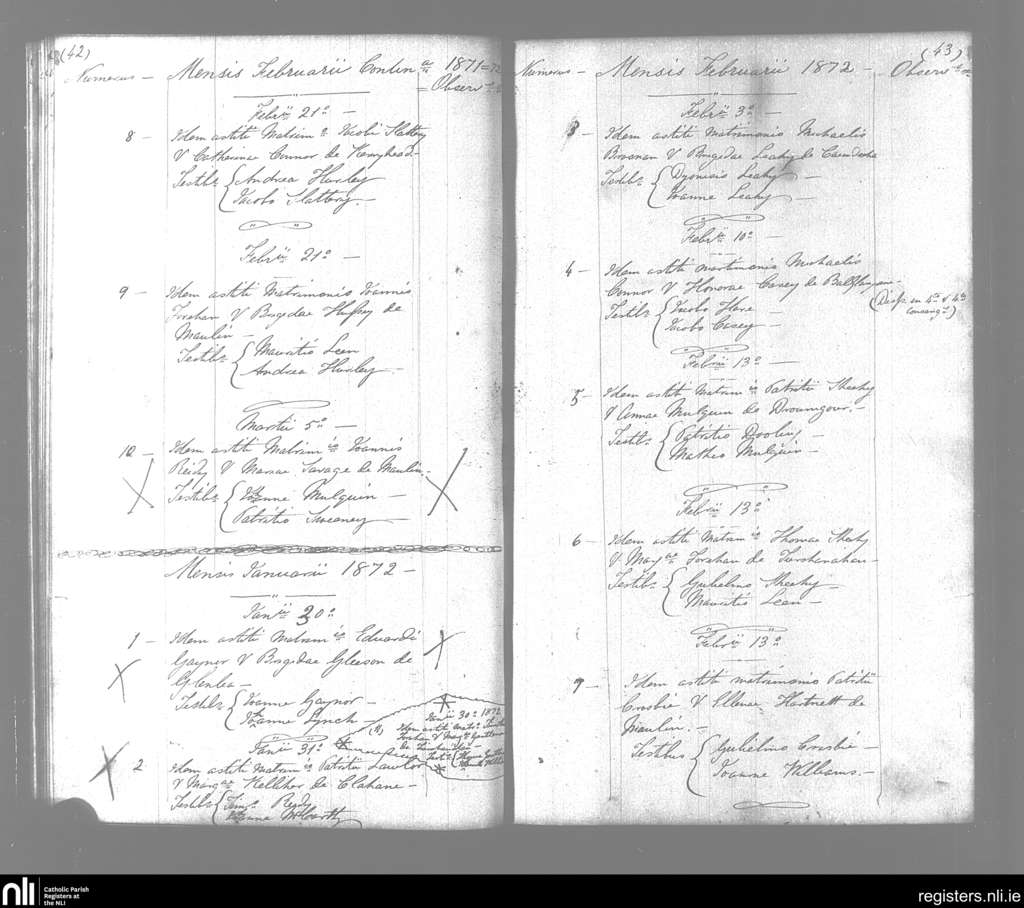 (42)
Numerus - Mensis Februarii Contin 1871=72
= Observ
Febrii 21o -
8 - Idem astiti Matrim o Jacobi Slattery
& Catherinae Connor de
Testibs { Andrea Hurley
Jacobo Slattery -
Febrii 21o -
9 - Idem astiti Matrimonio Joannis
Forhan & Brigdae de
Maulin -
Testibs { Mauritio Leen
Andrea Hurley -
Martii 5o -
10 - Idem astiti Matrim io Joannis
Reidy & Mariae Savage de Maulin -
Testibs { Joanne Mulquin -
Patritio Sweeney -
Mensis Januarii 1872 -
Janrii 30o
1 - Idem astiti Matrim io Eduardi
Gaynor & Brigdae Gleeson de
Glenlea -
Testibs { Joanne Gaynor -
Joanne Lynch -
Janrii 30o 1872
Idem astiti
Forhan & Margt
de
Testbs
Janrii 31o
2 Idem astiti Matrim io Patritii Lawlor
& Margae Kelliher de Clahane -
Testibs { Timo Reidy
Joanne McCarthy
(43)
Numerus - Mensis Februarii 1872 - Observ
Febrii 3o -
3 - Idem astiti Matrimonio Michaelis
Brosnan & Brigdae Leahy de
Testibs { Dyonisio Leahy -
Joanne Leahy -
Febrii 10o -
4 - Idem astiti matrimonio Michaelis
Connor & Honorae Casey de
(Disp. in 4o & 4o
consango)
Testibs { Jacobo Hare -
Jacobo Casey -
Febrii 13o -
5 - Idem astiti Matrim io Patritii Sheehy
& Annae Mulquin de Droumgour. -
Testibs { Patritio Dooling -
Matheo Mulquin -
Febrii 13o
6 - Idem astiti Matrim io Thomae Sheehy
& Margae Forhan de
Testibs { Gulielmo Sheehy -
Mauritio Leen -
Febrii 13o
7 - Idem astiti matrimonio Patritii
Crosbie & Ellenae Hartnett de
Maulin. -
Testibus { Gulielmo Crosbie -
Joanne Williams. -
nli Catholic Parish
Registers at
the NLI
registers.nli.ie